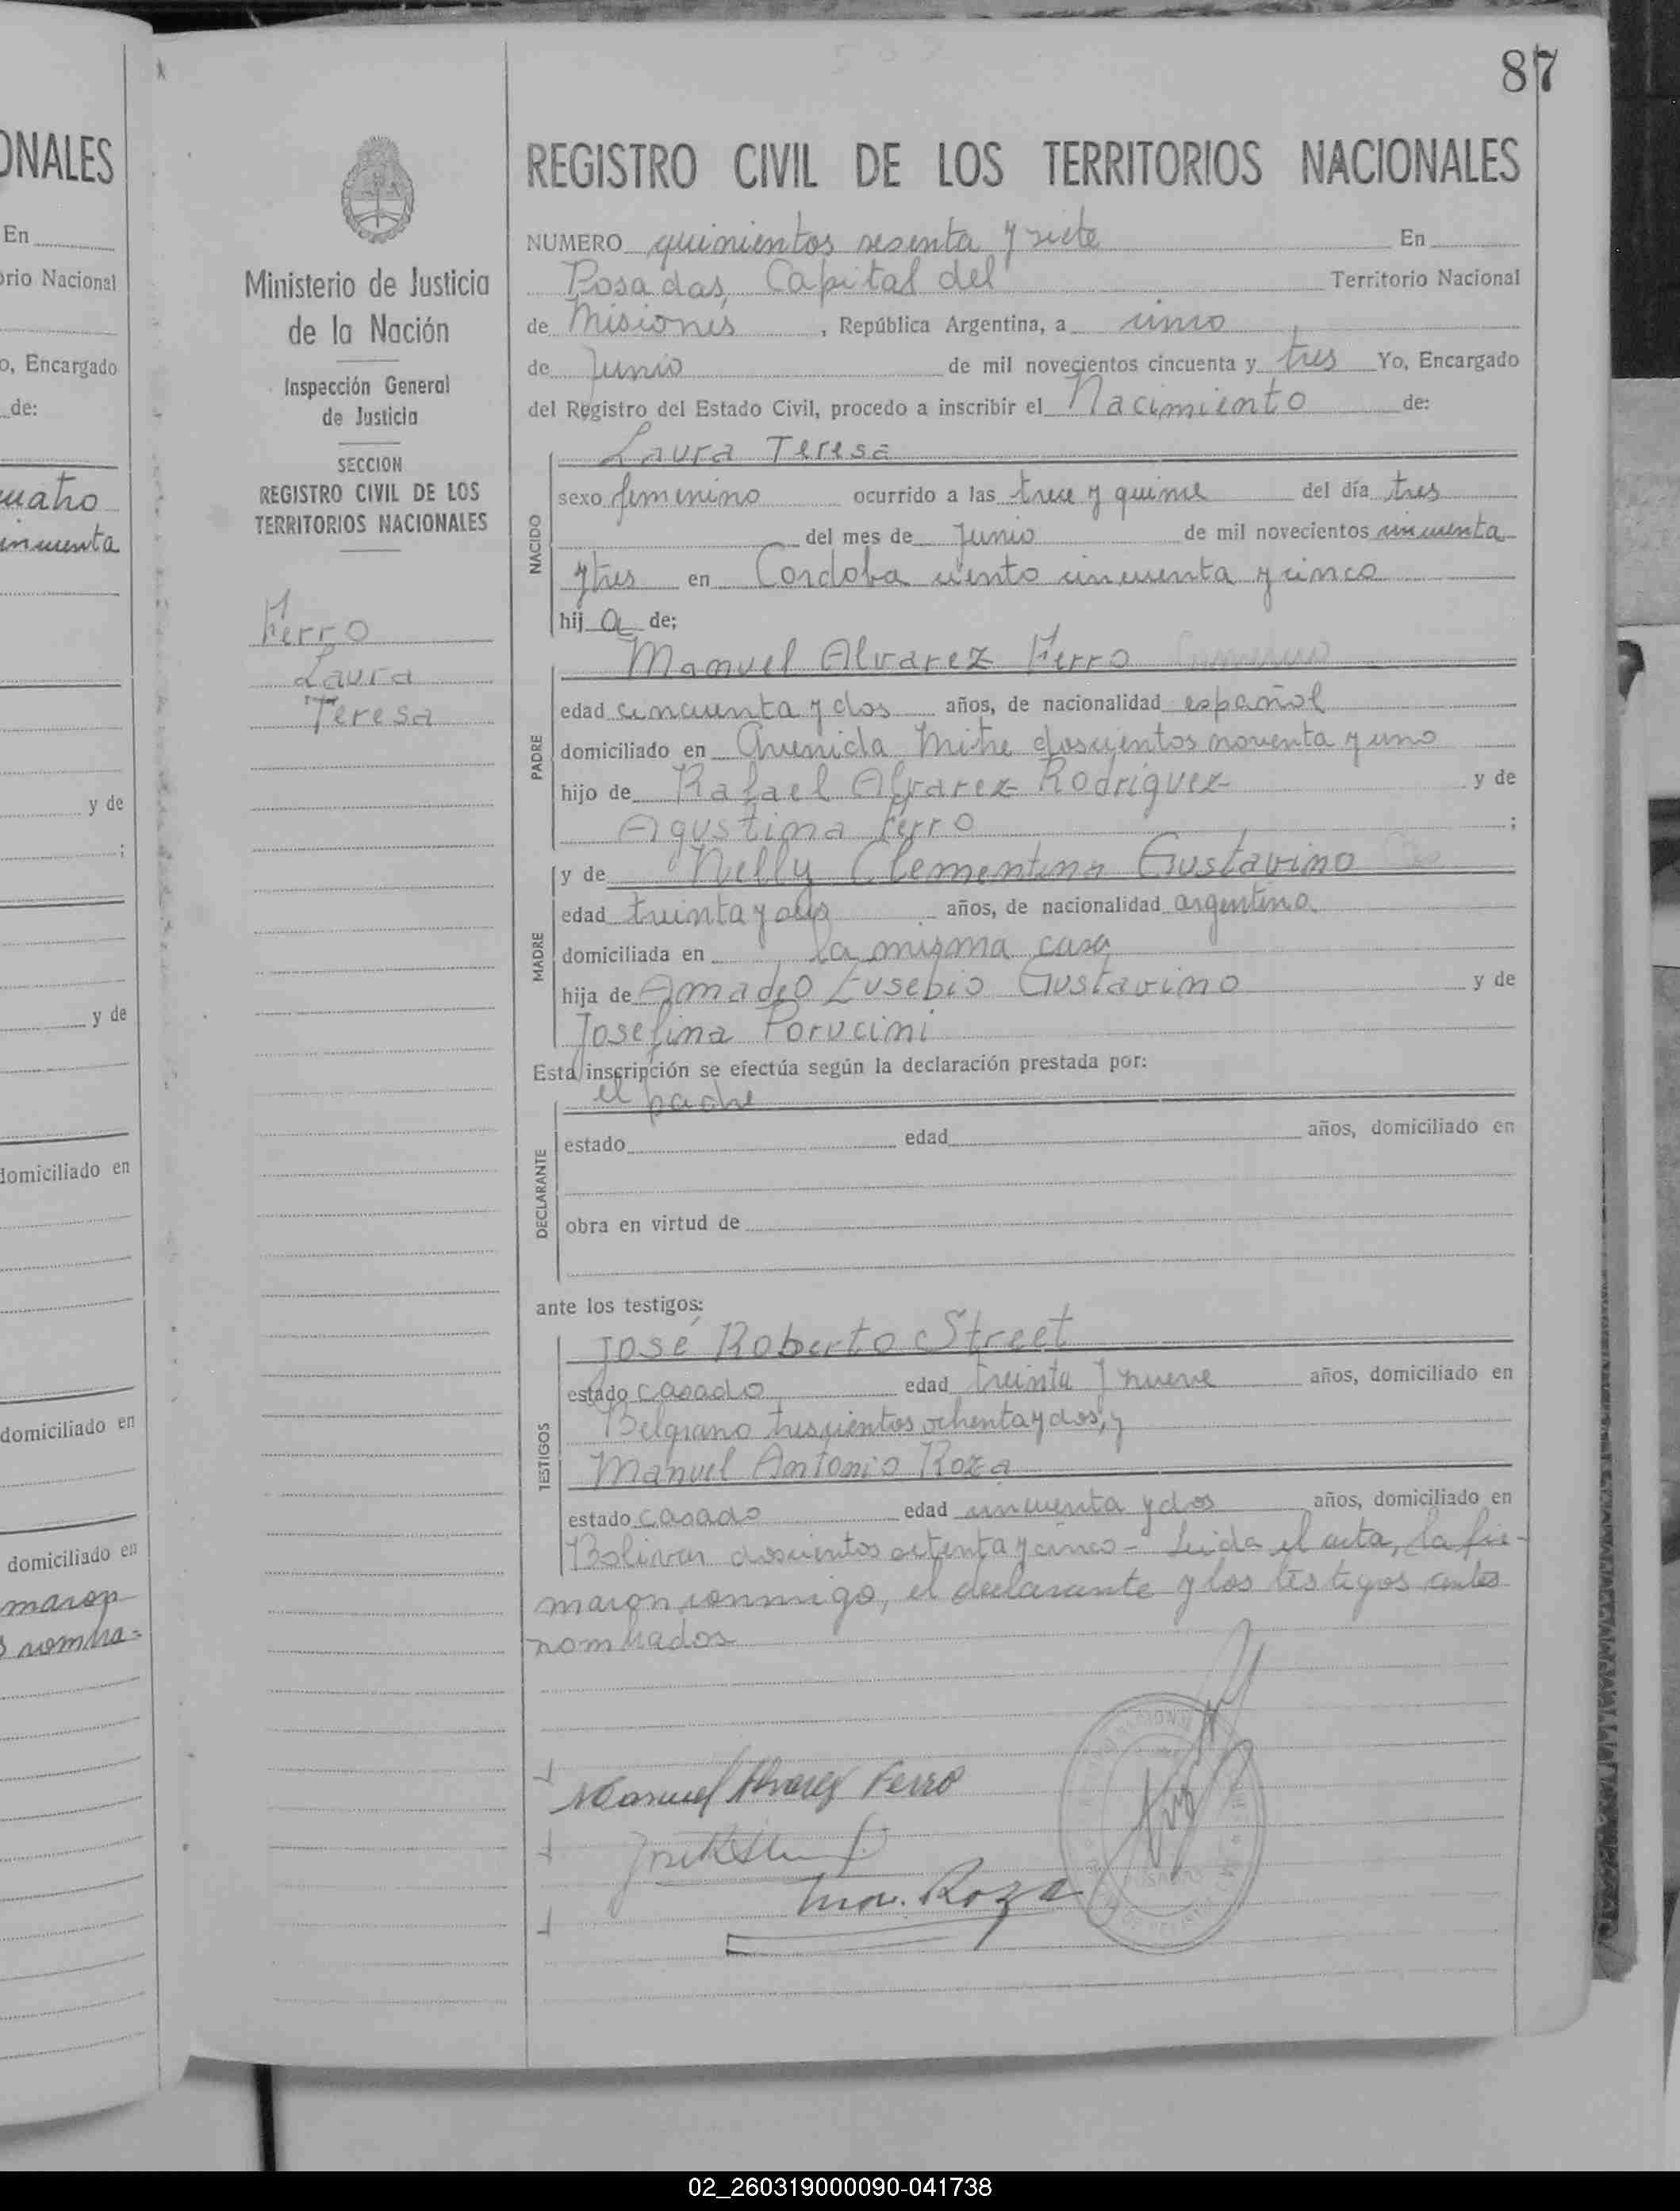 87
ONALES
En
orio Nacional
o, Encargado
de:
cuatro
cincuenta
y de
;
y de
domiciliado en
domiciliado en
domiciliado en
maron
s nombra-
Ministerio de Justicia
de la Nación
Inspección General
de Justicia
SECCION
REGISTRO CIVIL DE LOS
TERRITORIOS NACIONALES
Ferro
Laura
Teresa
REGISTRO CIVIL DE LOS TERRITORIOS NACIONALES
NUMERO quinientos sesenta y siete En
Posadas, Capital del Territorio Nacional
de Misiones, República Argentina, a cinco
de Junio de mil novecientos cincuenta y tres Yo, Encargado
del Registro del Estado Civil, procedo a inscribir el Nacimiento de:
NACIDO
Laura Teresa
sexo femenino ocurrido a las trece y quince del día tres
del mes de Junio de mil novecientos cincuenta
y tres en Cordoba ciento cincuenta y cinco
hij a de;
PADRE
Manuel Alvarez Ferro
edad cincuenta y dos años, de nacionalidad español
domiciliado en Avenida Mitre doscientos noventa y uno
hijo de Rafael Alvarez Rodriguez y de
Agustina Ferro ;
MADRE
y de Nelly Clementina Gustavino
edad treinta y años, de nacionalidad argentina
domiciliada en la misma casa
hija de Amadeo Eusebio Gustavino y de
Josefina Porucini
Esta inscripción se efectúa según la declaración prestada por:
DECLARANTE
el padre
estado edad años, domiciliado en
obra en virtud de
ante los testigos:
TESTIGOS
José Roberto Street
estado casado edad treinta y nueve años, domiciliado en
Belgrano trescientos ochenta y dos, y
Manuel Antonio Roza
estado casado edad cincuenta y dos años, domiciliado en
Bolivar doscientos setenta y cinco - Leida el acta, la fir-
maron conmigo, el declarante y los testigos antes
nombrados
Manuel Alvarez Ferro
Roza
02_260319000090-041738